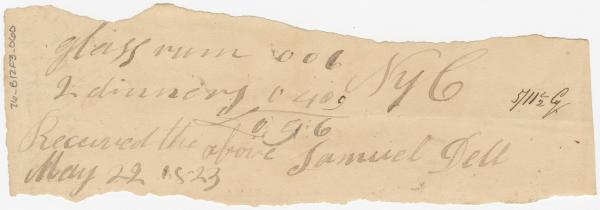 glass rum 006
2 dinners 0 400 NyC
0 9 6
Received the above Samuel Dell
May 22 1823
76-B12F3-060